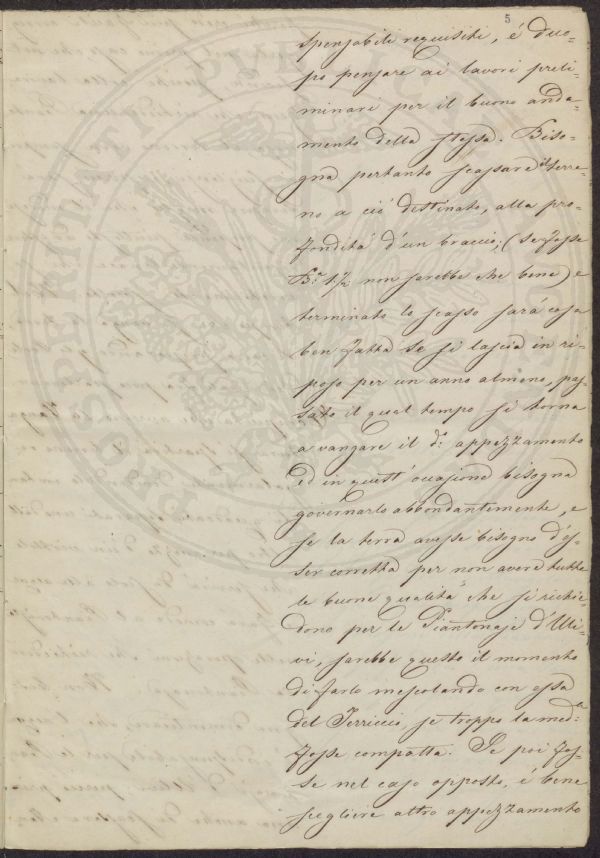 5
spensabili requisiti, é duo-
po pensare ai lavori preli-
minari per il buono anda-
mento della stessa. Biso-
gna pertanto scassare il terre-
no a ciò destinato, alla pro-
fondità d'un braccio; (se fosse
B.ª 1/2 non sarebbe che bene) e
terminato lo scasso sarà cosa
ben fatta se si lascia in ri-
poso per un anno almeno, pas-
sato il qual tempo si torna
a vangare il d.º appezzamento
ed in quest'occasione bisogna
governarlo abbondantemente, e
se la terra avesse bisogno d'es-
ser corretta per non avere tutte
le buone qualità che si richie-
dono per le Piantonaje d'Uli-
vi, sarebbe questo il momento
di farlo mescolando con essa
del Terriccio, se troppo la med.ª
fosse compatta. Se poi fos-
se nel caso opposto, é bene
scegliere altro appezzamento
PROSPERITATI PUBLICAE